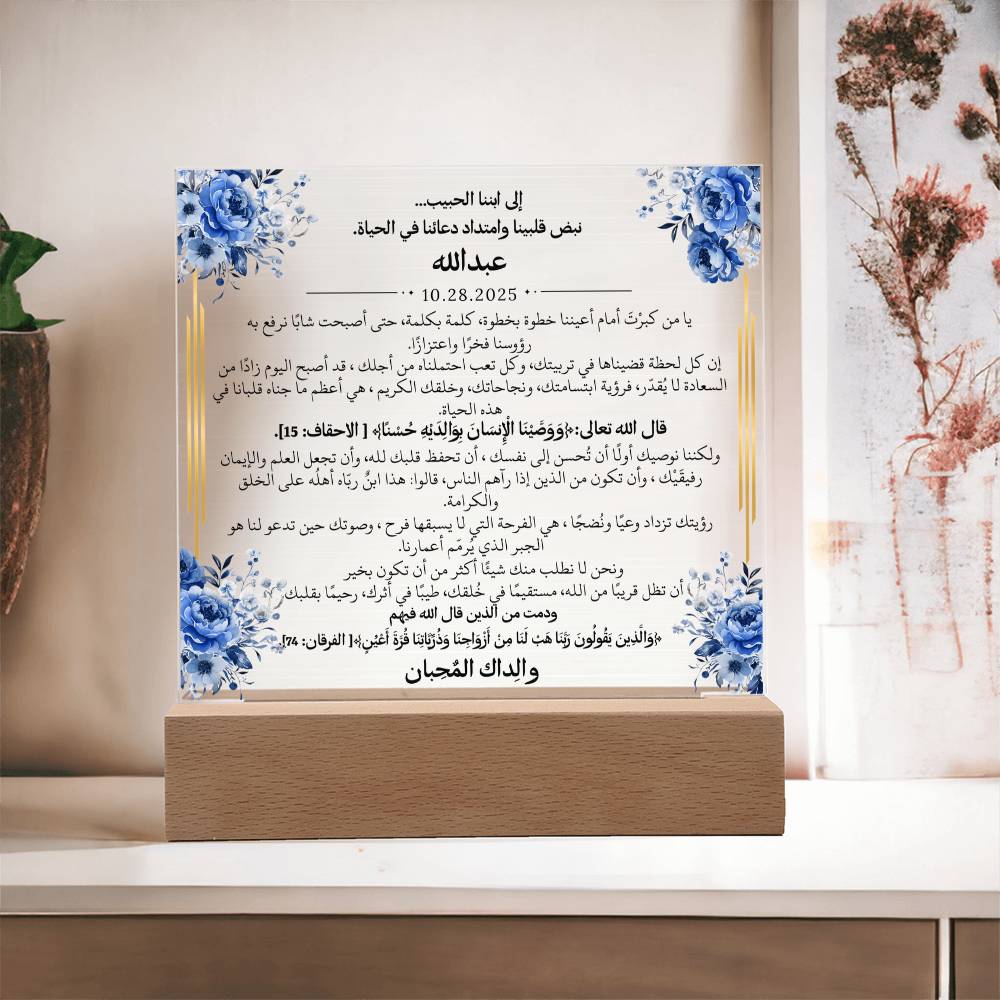 إلى ابننا الحبيب...
نبض قلبينا وامتداد دعائنا في الحياة.
عبدالله
10.28.2025
يا من كبرْتَ أمام أعيننا خطوة بخطوة، كلمة بكلمة، حتى أصبحت شابًا نرفع به
رؤوسنا فخرًا واعتزازًا.
إن كل لحظة قضيناها في تربيتك، وكل تعب احتملناه من أجلك ، قد أصبح اليوم زادًا من
السعادة لا يُقدّر، فرؤية ابتسامتك، ونجاحاتك، وخلقك الكريم ، هي أعظم ما جناه قلبانا في
هذه الحياة.
قال الله تعالى:﴿وَوَصَّيْنَا الْإِنسَانَ بِوَالِدَيْهِ حُسْنًا﴾ [ الاحقاف: 15].
ولكننا نوصيك أولًا أن تُحسن إلى نفسك ، أن تحفظ قلبك لله، وأن تجعل العلم والإيمان
رفيقَيْك ، وأن تكون من الذين إذا رآهم الناس، قالوا: هذا ابنٌ ربّاه أهلُه على الخلق
والكرامة.
رؤيتك تزداد وعيًا ونُضجًا ، هي الفرحة التي لا يسبقها فرح ، وصوتك حين تدعو لنا هو
الجبر الذي يُرمّم أعمارنا.
ونحن لا نطلب منك شيئًا أكثر من أن تكون بخير
أن تظل قريبًا من الله، مستقيمًا في خُلقك، طيبًا في أثرك، رحيمًا بقلبك
ودمت من الذين قال الله فيهم
﴿وَالَّذِينَ يَقُولُونَ رَبَّنَا هَبْ لَنَا مِنْ أَزْوَاجِنَا وَذُرِّيَّاتِنَا قُرَّةَ أَعْيُنٍ﴾[ الفرقان: 74].
والِداك المُحِبان